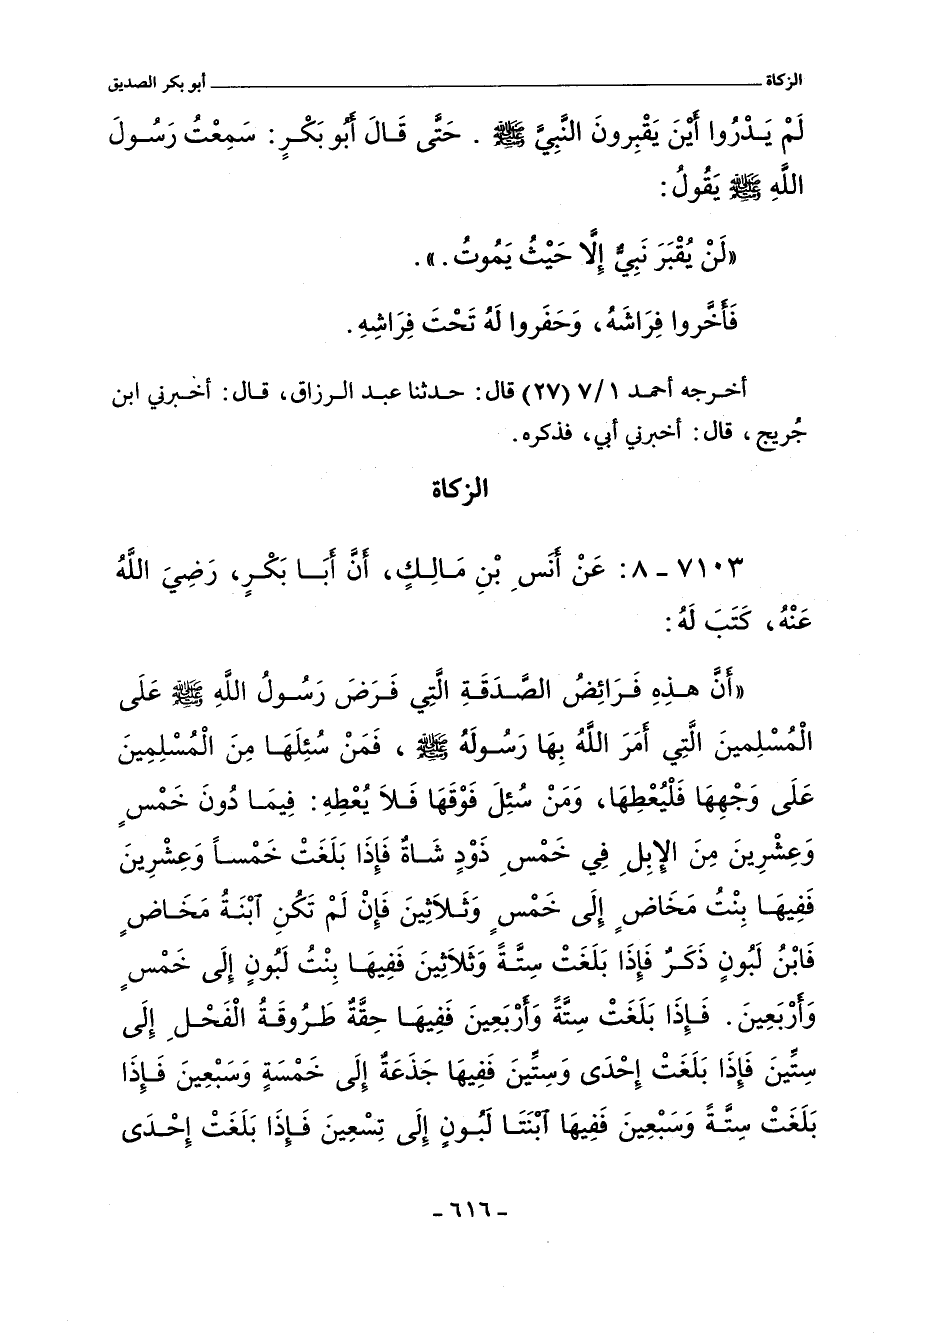 الزكاة ـــــــ أبو بكر الصديق
لَمْ يَدْرُوا أَيْنَ يَقْبِرونَ النَّبِيَّ ﷺ . حَتَّى قَالَ أَبُو بَكْرٍ: سَمِعْتُ رَسُولَ
اللَّهِ ﷺ يَقُولُ:
«لَنْ يُقْبَرَ نَبِيٌّ إِلَّا حَيْثُ يَمُوتُ.».
فَأَخَّروا فِرَاشَهُ، وَحَفَروا لَهُ تَحْتَ فِرَاشِهِ.
أخرجه أحمد ٧/١ (٢٧) قال: حدثنا عبد الرزاق، قال: أخبرني ابن
جُريج، قال: أخبرني أبي، فذكره.
الزكاة
٧١٠٣ ـ ٨: عَنْ أَنَسِ بْنِ مَالِكٍ، أَنَّ أَبَا بَكْرٍ، رَضِيَ اللَّهُ
عَنْهُ، كَتَبَ لَهُ:
«أَنَّ هذِهِ فَرَائِضُ الصَّدَقَةِ الَّتِي فَرَضَ رَسُولُ اللَّهِ ﷺ عَلَى
الْمُسْلِمينَ الَّتِي أَمَرَ اللَّهُ بِهَا رَسُولَهُ ﷺ ، فَمَنْ سُئِلَهَا مِنَ الْمُسْلِمِينَ
عَلَى وَجْهِهَا فَلْيُعْطِهَا، وَمَنْ سُئِلَ فَوْقَهَا فَلاَ يُعْطِهِ: فِيمَا دُونَ خَمْسٍ
وَعِشْرِينَ مِنَ الإِبِلِ فِي خَمْسِ ذَوْدٍ شَاةٌ فَإِذَا بَلَغَتْ خَمْساً وَعِشْرِينَ
فَفِيهَا بِنْتُ مَخَاضٍ إِلَى خَمْسٍ وَثَلاَثِينَ فَإِنْ لَمْ تَكُنِ ٱبْنَةُ مَخَاضٍ
فَابْنُ لَبُونٍ ذَكَرٌ فَإِذَا بَلَغَتْ سِتَّةً وَثَلاَثِينَ فَفِيهَا بِنْتُ لَبُونٍ إِلَى خَمْسٍ
وَأَرْبَعِينَ. فَإِذَا بَلَغَتْ سِتَّةً وَأَرْبَعِينَ فَفِيهَا حِقَّةٌ طَرُوقَةُ الْفَحْلِ إِلَى
سِتِّينَ فَإِذَا بَلَغَتْ إِحْدَى وَسِتِّينَ فَفِيهَا جَذَعَةٌ إِلَى خَمْسَةٍ وَسَبْعِينَ فَإِذَا
بَلَغَتْ سِتَّةً وَسَبْعِينَ فَفِيهَا ٱبْنَتَا لَبُونٍ إِلَى تِسْعِينَ فَإِذَا بَلَغَتْ إِحْدَى
ـ ٦١٦ ـ